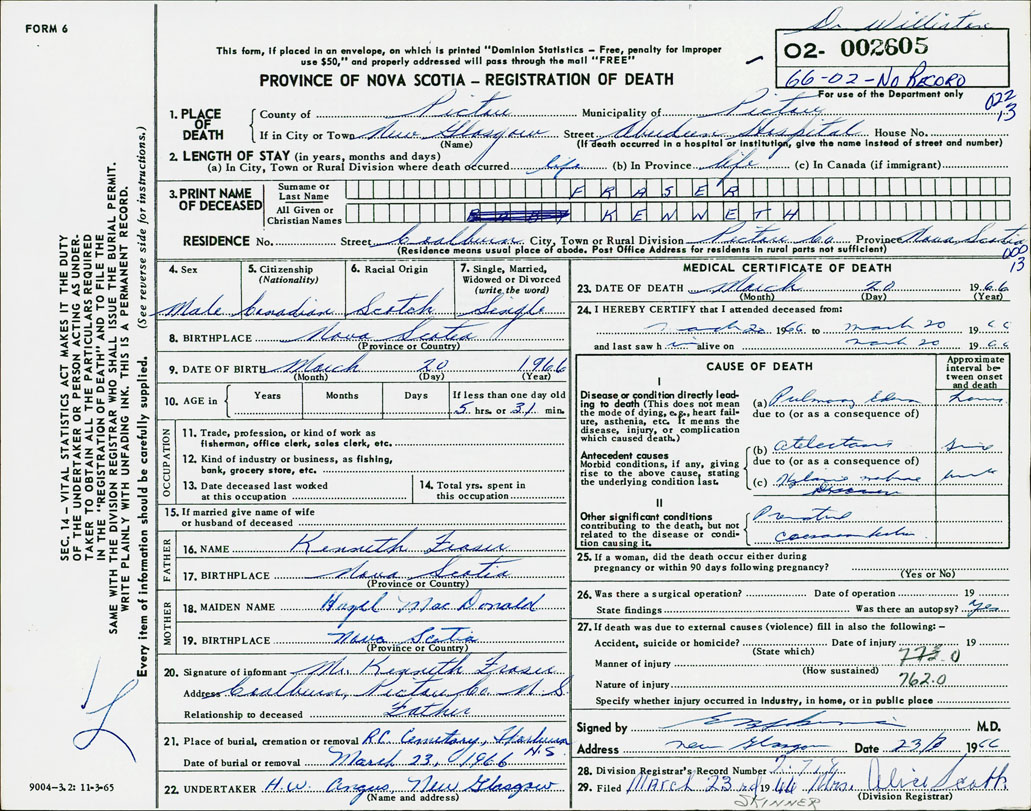 FORM 6
Dr Williston
02- 002605
66-02-No RECORD
For use of the Department only
022
13
This form, if placed in an envelope, on which is printed "Dominion Statistics – Free, penalty for improper
use $50," and properly addressed will pass through the mail "FREE"
PROVINCE OF NOVA SCOTIA – REGISTRATION OF DEATH
1. PLACE OF DEATH
County of Pictou Municipality of Pictou
If in City or Town New Glasgow Street Aberdeen Hospital House No.
(Name) (If death occurred in a hospital or institution, give the name instead of street and number)
2. LENGTH OF STAY (in years, months and days)
(a) In City, Town or Rural Division where death occurred life (b) In Province life (c) In Canada (if immigrant)
3. PRINT NAME OF DECEASED
Surname or Last Name FRASER
All Given or Christian Names KENNETH
RESIDENCE No. Street Coalburn City, Town or Rural Division Pictou Co Province Nova Scotia
(Residence means usual place of abode. Post Office Address for residents in rural parts not sufficient)
000
13
4. Sex Male
5. Citizenship (Nationality) Canadian
6. Racial Origin Scotch
7. Single, Married, Widowed or Divorced (write the word) Single
8. BIRTHPLACE Nova Scotia
(Province or Country)
9. DATE OF BIRTH March 20 1966
(Month) (Day) (Year)
10. AGE in Years Months Days If less than one day old
5 hrs. or 31 min.
OCCUPATION
11. Trade, profession, or kind of work as
fisherman, office clerk, sales clerk, etc.
12. Kind of industry or business, as fishing,
bank, grocery store, etc.
13. Date deceased last worked
at this occupation
14. Total yrs. spent in
this occupation
15. If married give name of wife
or husband of deceased
FATHER
16. NAME Kenneth Fraser
17. BIRTHPLACE Nova Scotia
(Province or Country)
MOTHER
18. MAIDEN NAME Hazel MacDonald
19. BIRTHPLACE Nova Scotia
(Province or Country)
20. Signature of informant Mr. Kenneth Fraser
Address Coalburn, Pictou Co. N.S.
Relationship to deceased Father
21. Place of burial, cremation or removal R.C. Cemetery,
N.S.
Date of burial or removal March 23, 1966
22. UNDERTAKER H.W. Angus, New Glasgow
(Name and address)
MEDICAL CERTIFICATE OF DEATH
23. DATE OF DEATH March 20 1966
(Month) (Day) (Year)
24. I HEREBY CERTIFY that I attended deceased from:
March 20 1966 to March 20 1966
and last saw h im alive on March 20 1966
CAUSE OF DEATH
Approximate interval between onset and death
I
Disease or condition directly leading to death (This does not mean the mode of dying, e.g., heart failure, asthenia, etc. It means the disease, injury, or complication which caused death.)
(a) Pulmonary Edema
due to (or as a consequence of)
Antecedent causes
Morbid conditions, if any, giving rise to the above cause, stating the underlying condition last.
(b) Atelectasis
due to (or as a consequence of)
(c) Hyaline membrane
II
Other significant conditions
contributing to the death, but not related to the disease or condition causing it.
25. If a woman, did the death occur either during
pregnancy or within 90 days following pregnancy?
(Yes or No)
26. Was there a surgical operation? Date of operation 19
State findings Was there an autopsy? Yes
27. If death was due to external causes (violence) fill in also the following: –
Accident, suicide or homicide? Date of injury 19
(State which)
773.0
Manner of injury
(How sustained)
Nature of injury 762.0
Specify whether injury occurred in industry, in home, or in public place
Signed by M.D.
Address New Glasgow Date 23/3 1966
28. Division Registrar's Record Number
29. Filed March 23rd 1966 Mrs. Alice Scott
SKINNER (Division Registrar)
SEC. 14 – VITAL STATISTICS ACT MAKES IT THE DUTY
OF THE UNDERTAKER OR PERSON ACTING AS UNDER-
TAKER TO OBTAIN ALL THE PARTICULARS REQUIRED
IN THE "REGISTRATION OF DEATH" AND TO FILE THE
SAME WITH THE DIVISION REGISTRAR WHO SHALL ISSUE THE BURIAL PERMIT.
WRITE PLAINLY WITH UNFADING INK. THIS IS A PERMANENT RECORD.
Every item of information should be carefully supplied. (See reverse side for instructions.)
9004-3.2: 11-3-65